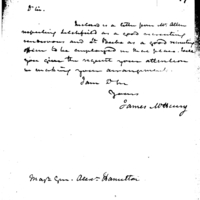 Sir.
Inclosed is a letter from Mr Allen
respecting Litchfield as a good recruiting
rendezvous and Dr Beebe as a good recruiting
officer to be employed in that place. Will
you give the request your attention
in making your arrangement.
I am Dr Sir
Yours
James McHenry
Majr Gen. Alexr Hamilton